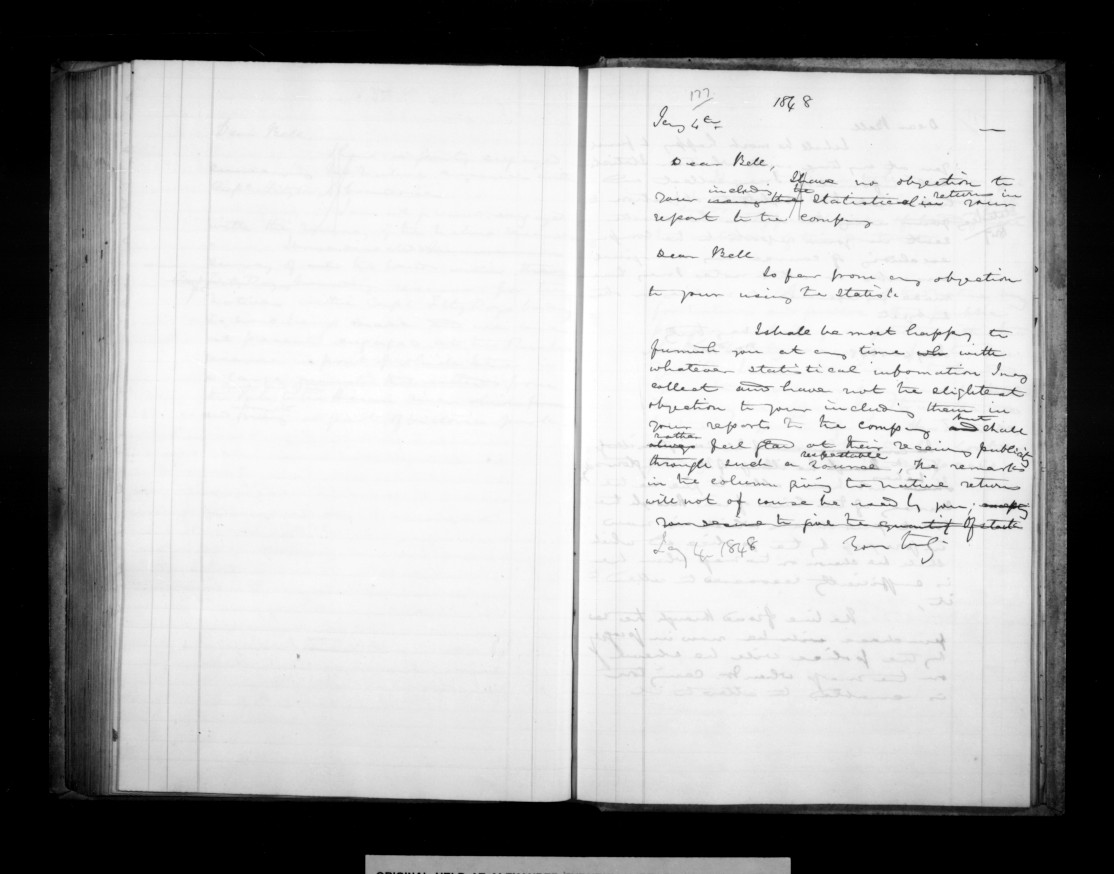 177
1848
Jany 4th
Dear Bell,
I have no objection to
your using the including the statistical returns in your
report to the company
Dear Bell
So far from any objection
to your using the statisti
I shall be most happy to
furnish you at any time with
whatever statistical infomation I may
collect and have not the slightest
objection to your including them in
your reports to the company and but shall
always rather feel glad at their receiving publicity
through such a respectable source, the remarks
in the column giving the native returns
will not of course be used by you; except
your desire to give the quantity of stock
Jany 4 1848 Yours truly
ORIGINAL HELD AT ALEXANDER